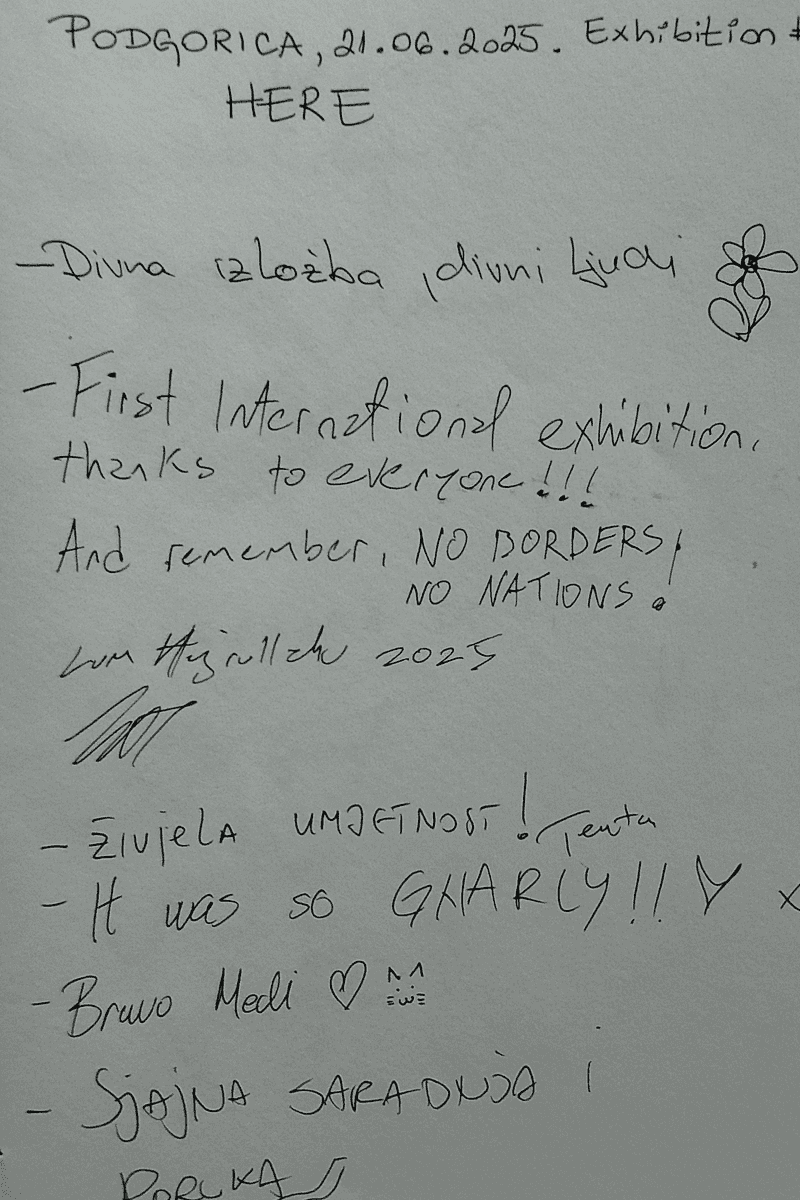 PODGORICA, 21.06.2025. Exhibition
HERE
- Divna izložba, divni ljudi
- First International exhibition,
thanks to everyone!!!
And remember, NO BORDERS,
NO NATIONS!
Lum Hajrullahu 2025
- ŽIVJELA UMJETNOST! Teuta
- It was so GNARLY!!
- Bravo Medi ♡
- SJAJNA SARADNJA I
PORUKA